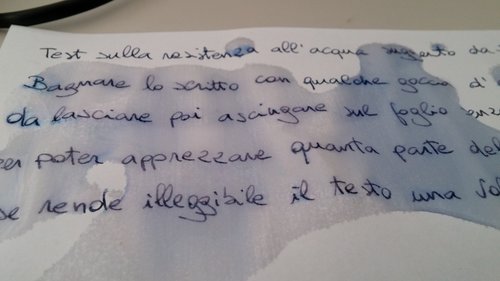 Test sulla resistenza all'acqua suggerito da
Bagnare lo scritto con qualche goccia d'
da lasciare poi asciugare sul foglio
per poter apprezzare quanta parte del
se rende illeggibile il testo una